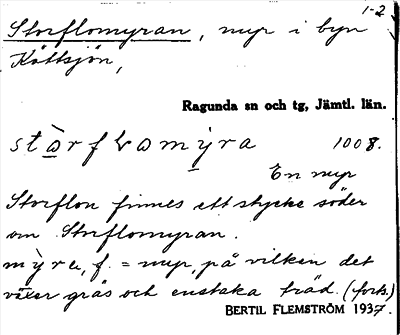 1-2
Storflomyran, myr i byn
Köttsjön,
Ragunda sn och tg, Jämtl. län.
stòrfɫomỳra 1008.
En myr
Storflon finnes ett stycke söder
om Storflomyran.
mỳra, f. = myr, på vilken det
växer gräs och enstaka träd. (forts.)
BERTIL FLEMSTRÖM 1937.